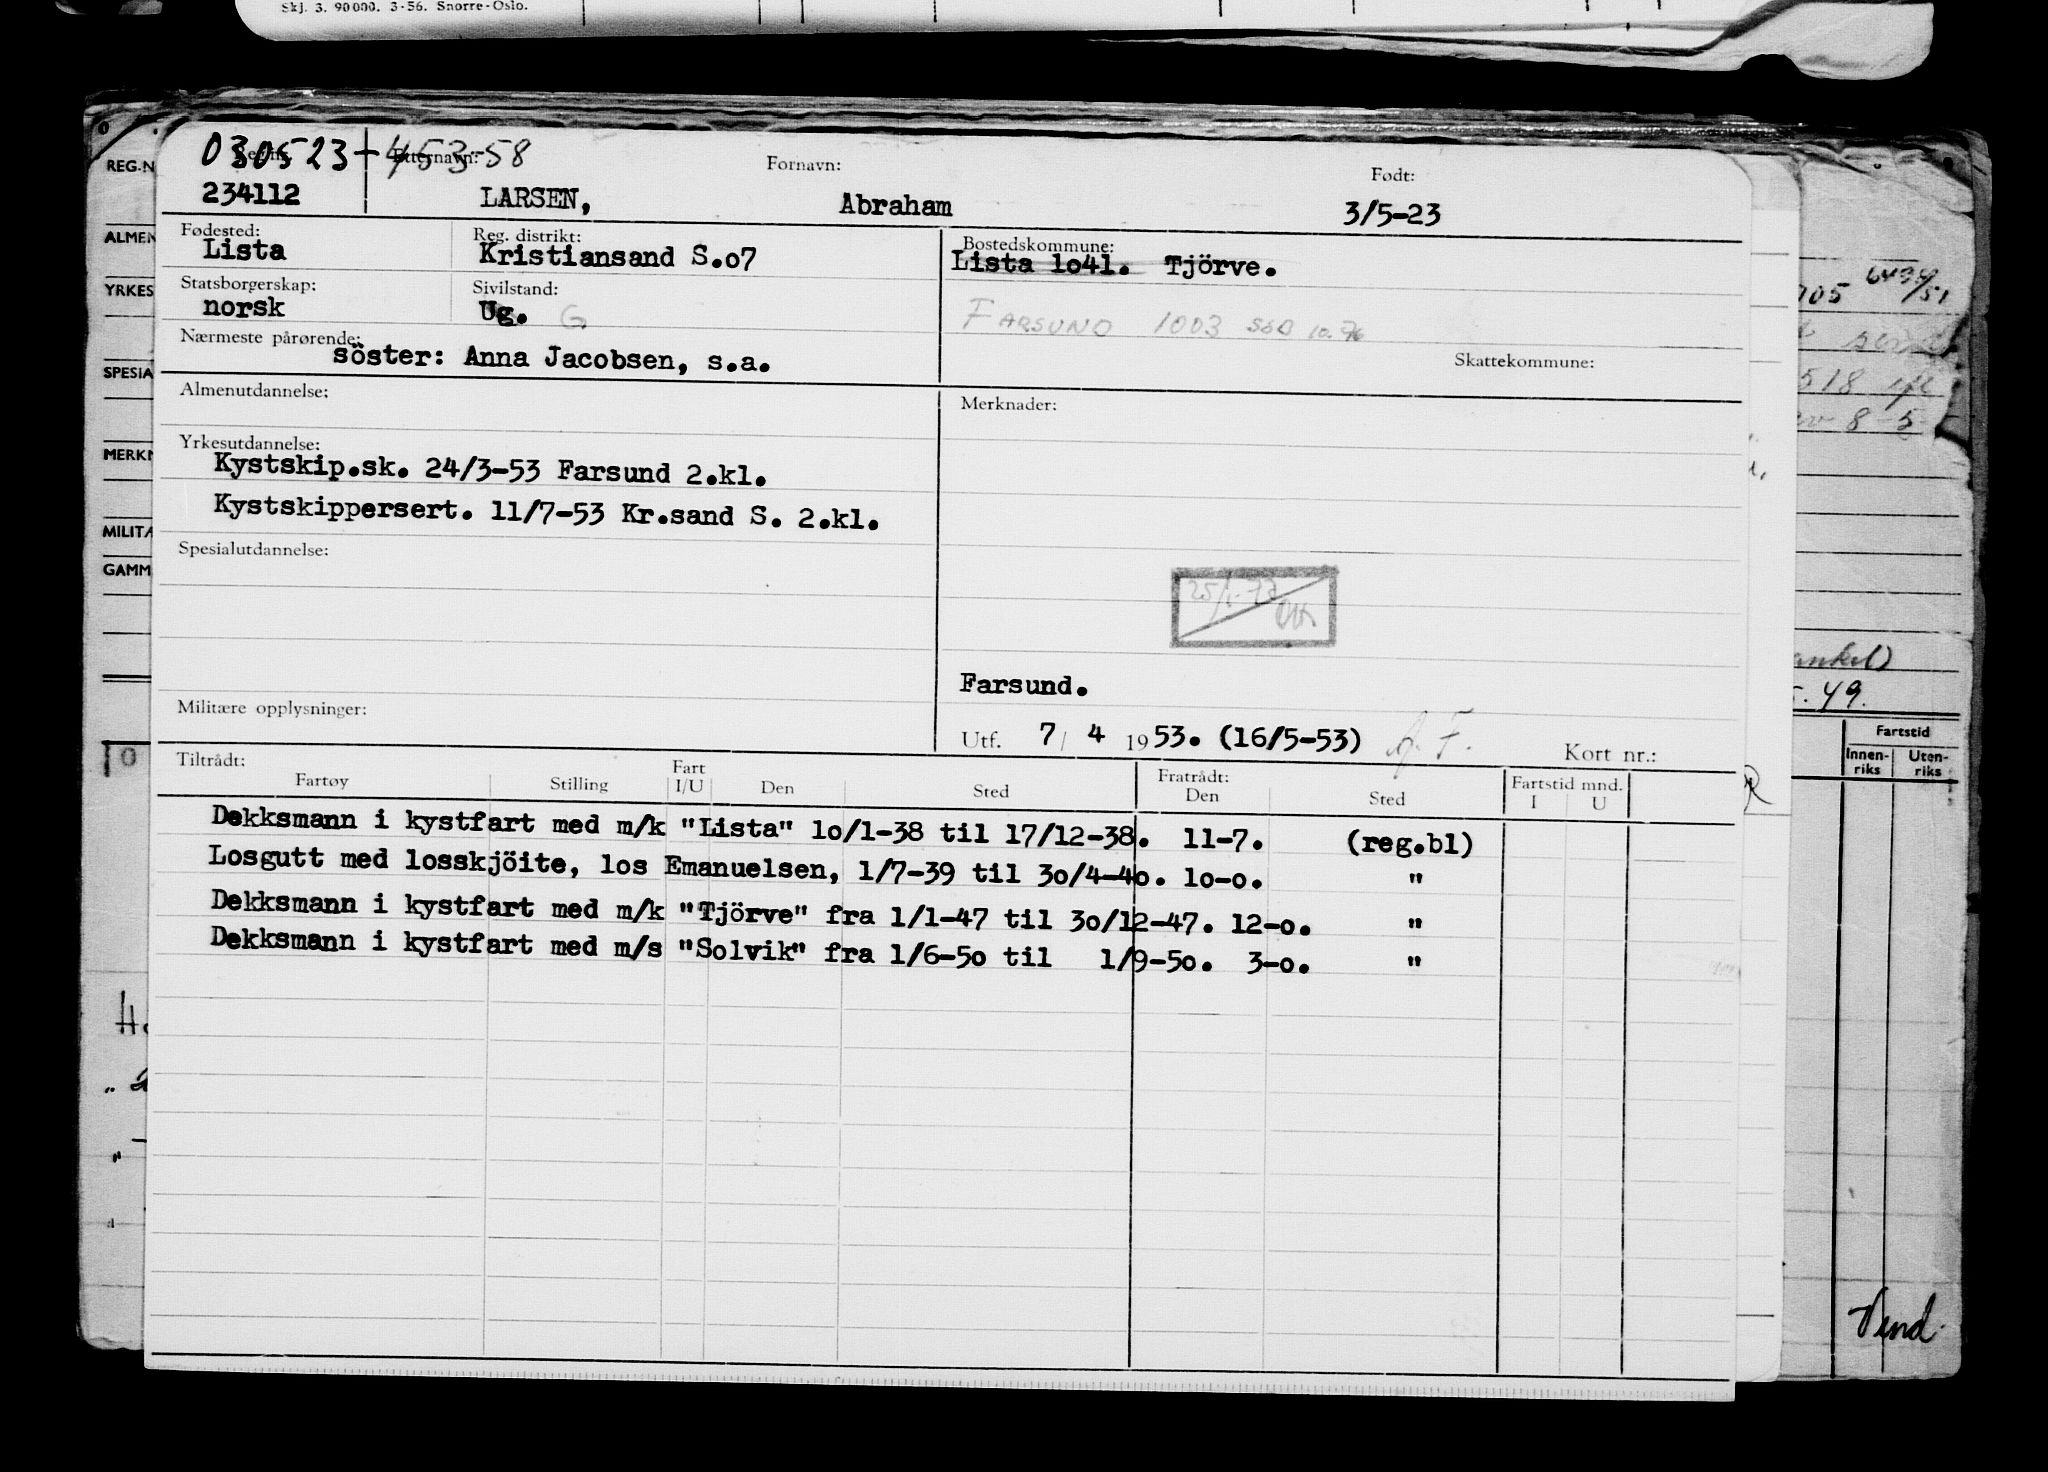 Skj. 3. 90000. 3-56. Snorre-Oslo.
030523 + 453-58
Reg.nr. Etternavn: Fornavn: Født:
234112 LARSEN, Abraham 3/5-23
Fødested: Reg. distrikt: Bostedskommune:
Lista Kristiansand S.o7 Lista 1o41. Tjörve.
Statsborgerskap: Sivilstand:
norsk Ug. G FARSUND 1003 SSB 10.76
Nærmeste pårørende: Skattekommune:
söster: Anna Jacobsen, s.a.
Almenutdannelse: Merknader:
Yrkesutdannelse:
Kystskip.sk. 24/3-53 Farsund 2.kl.
Kystskippersert. 11/7-53 Kr.sand S. 2.kl.
Spesialutdannelse:
Farsund.
Militære opplysninger:
Utf. 7/ 4 1953. (16/5-53) Kort nr.:
Tiltrådt: Fart Fratrådt: Fartstid mnd.
Fartøy Stilling I/U Den Sted Den Sted I U
Dekksmann i kystfart med m/k "Lista" 1o/1-38 til 17/12-38. 11-7. (reg.bl)
Losgutt med losskjöite, los Emanuelsen, 1/7-39 til 3o/4-4o. 1o-o. "
Dekksmann i kystfart med m/k "Tjörve" fra 1/1-47 til 3o/12-47. 12-o. "
Dekksmann i kystfart med m/s "Solvik" fra 1/6-5o til 1/9-5o. 3-o. "
REG.N
ALMEN
YRKES
SPESIA
MERKN
MILITÆ
GAMM
Fartstid
Innen-riks Uten-riks
Vend